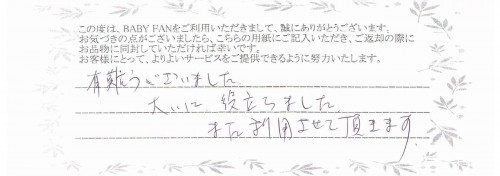 この度は、BABY FANをご利用いただきまして、誠にありがとうございます。
お気づきの点がございましたら、こちらの用紙にご記入いただき、ご返却の際に
お品物に同封していただければ幸いです。
お客様にとって、よりよいサービスをご提供できるように努力いたします。
有難うございました。
大いに役立ちました。
また利用させて頂きます。